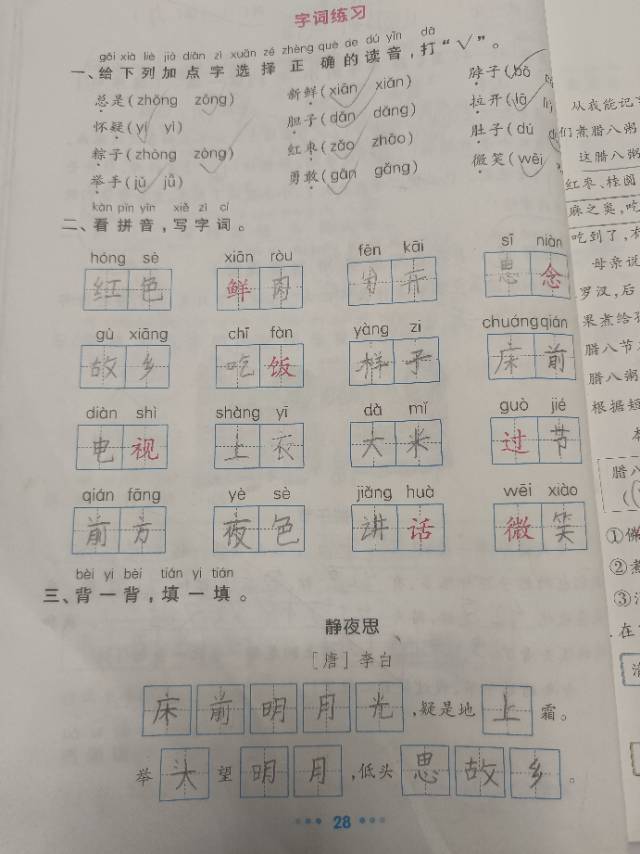 字词练习
gěi xià liè jiā diǎn zì xuǎn zé zhèng què de dú yīn dǎ
一、给下列加点字选择正确的读音，打“√”。
总是(zhǒng zǒng) 新鲜(xiān xiǎn) 脖子(bó
怀疑(yí yì) 胆子(dǎn dāng) 拉开(lā
粽子(zhòng zòng) 红枣(zǎo zhǎo) 肚子(dù
举手(jǔ jǚ) 勇敢(gǎn gǎng) 微笑(wēi
kàn pīn yīn xiě zì cí
二、看拼音，写字词。
hóng sè xiān ròu fēn kāi sī niàn
红色 鲜肉 分开 思念
gù xiāng chī fàn yàng zi chuáng qián
故乡 吃饭 样子 床前
diàn shì shàng yī dà mǐ guò jié
电视 上衣 大米 过节
qián fāng yè sè jiǎng huà wēi xiào
前方 夜色 讲话 微笑
bèi yi bèi tián yi tián
三、背一背，填一填。
静夜思
［唐］李白
床前明月光，疑是地上霜。
举头望明月，低头思故乡。
28
从我能记
们煮腊八粥
这腊八粥
红枣、桂圆
麻之类，吃
吃到了，
母亲说
罗汉，后
果煮给
腊八节
腊八粥
根据短
腊八
①
②煮
③
在